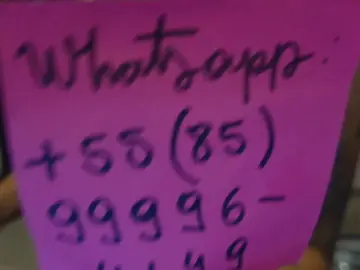 Whatsapp:
+55(85)
99996-